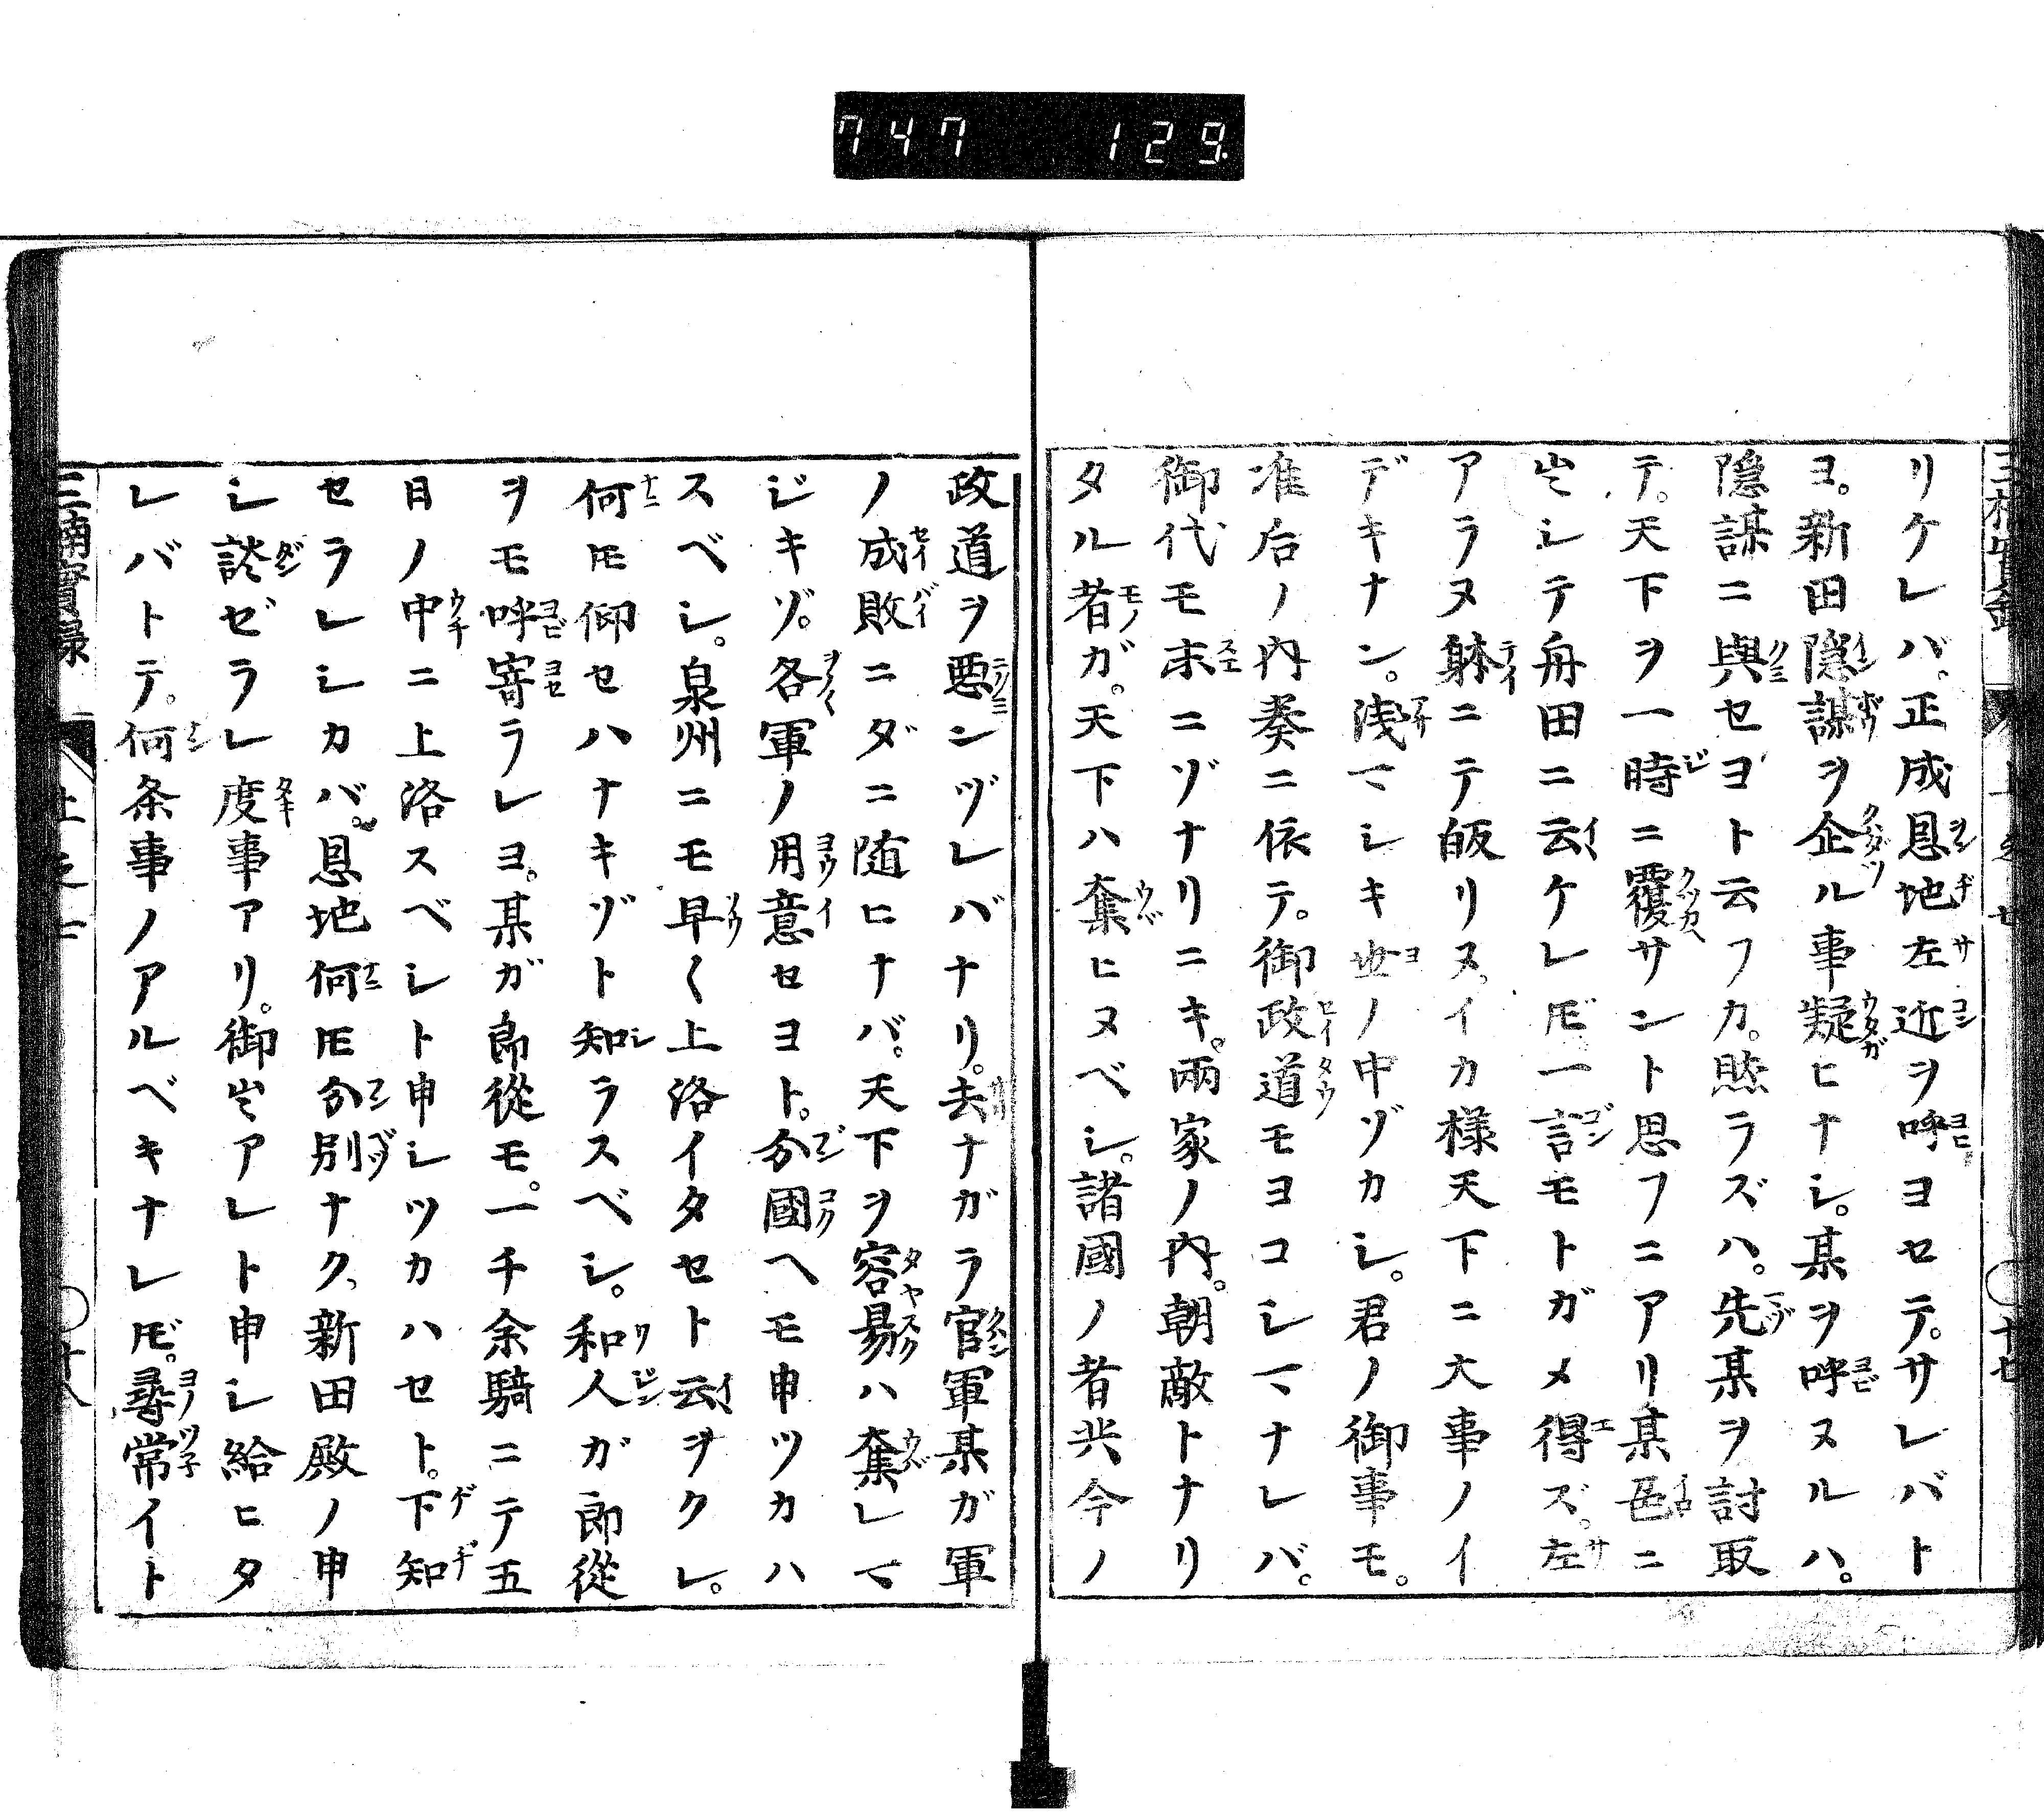 747 129
リケレバ。正成恩地左近ヲ呼ヨセテ。サレバト
ヨ。新田隠謀ヲ企ル事疑ヒナシ。某ヲ呼ヌルハ。
隠謀ニ與セヨト云フカ。然ラズハ。先某ヲ討取
テ。天下ヲ一時ニ覆サント思フニアリ某邑ニ
出シテ舟田ニ云ケレ𪜈一言モトガメ得ズ。左
アラヌ躰ニテ皈リヌ。イカ様天下ニ大事ノイ
デキナン。浅マシキ世ノ中ゾカシ。君ノ御事モ。
准后ノ内奏ニ依テ。御政道モヨコシマナレバ。
御代モ末ニゾナリニキ。兩家ノ内。朝敵トナリ
タル者ガ。天下ハ奪ヒヌベシ。諸國ノ者共今ノ
政道ヲ悪ンヅレバナリ。去ナガラ官軍某ガ軍
ノ成敗ニダニ随ヒナバ。天下ヲ容易ハ奪レマ
ジキゾ。各軍ノ用意セヨト。分國ヘモ申ツカハ
スベシ。泉州ニモ早〱上洛イタセト云ヲクレ。
何𪜈仰セハナキゾト知ラスベシ。和人ガ郎從
ヲモ呼寄ラレヨ。某ガ郎從モ。一千余騎ニテ五
日ノ中ニ上洛スベシト申シツカハセト。下知
セラレシカバ。恩地何𪜈分別ナク、新田殿ノ申
シ談ゼラレ度事アリ。御出アレト申シ給ヒタ
レバトテ。何条事ノアルベキナレ𪜈。尋常イト
三楠實録 上之七 十八